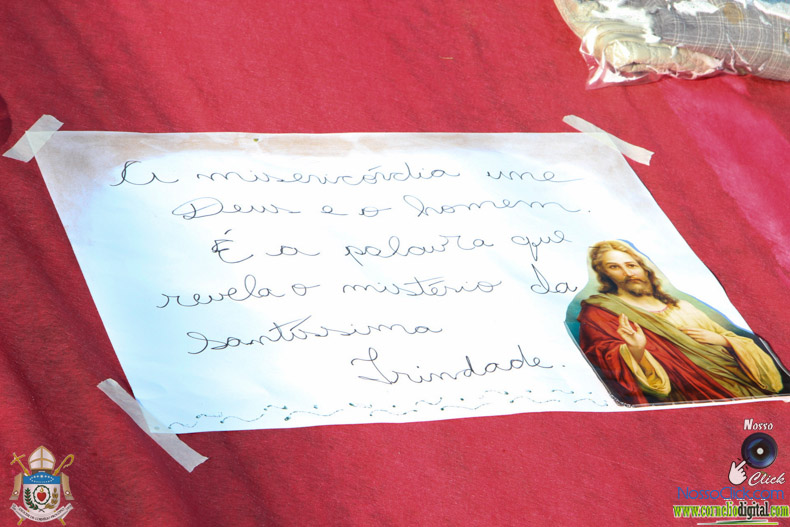 A misericórdia une
Deus e o homem.
É a palavra que
revela o mistério da
Santíssima
Trindade.
Nosso
Click
NossoClick.com
www.corneliodigital.com